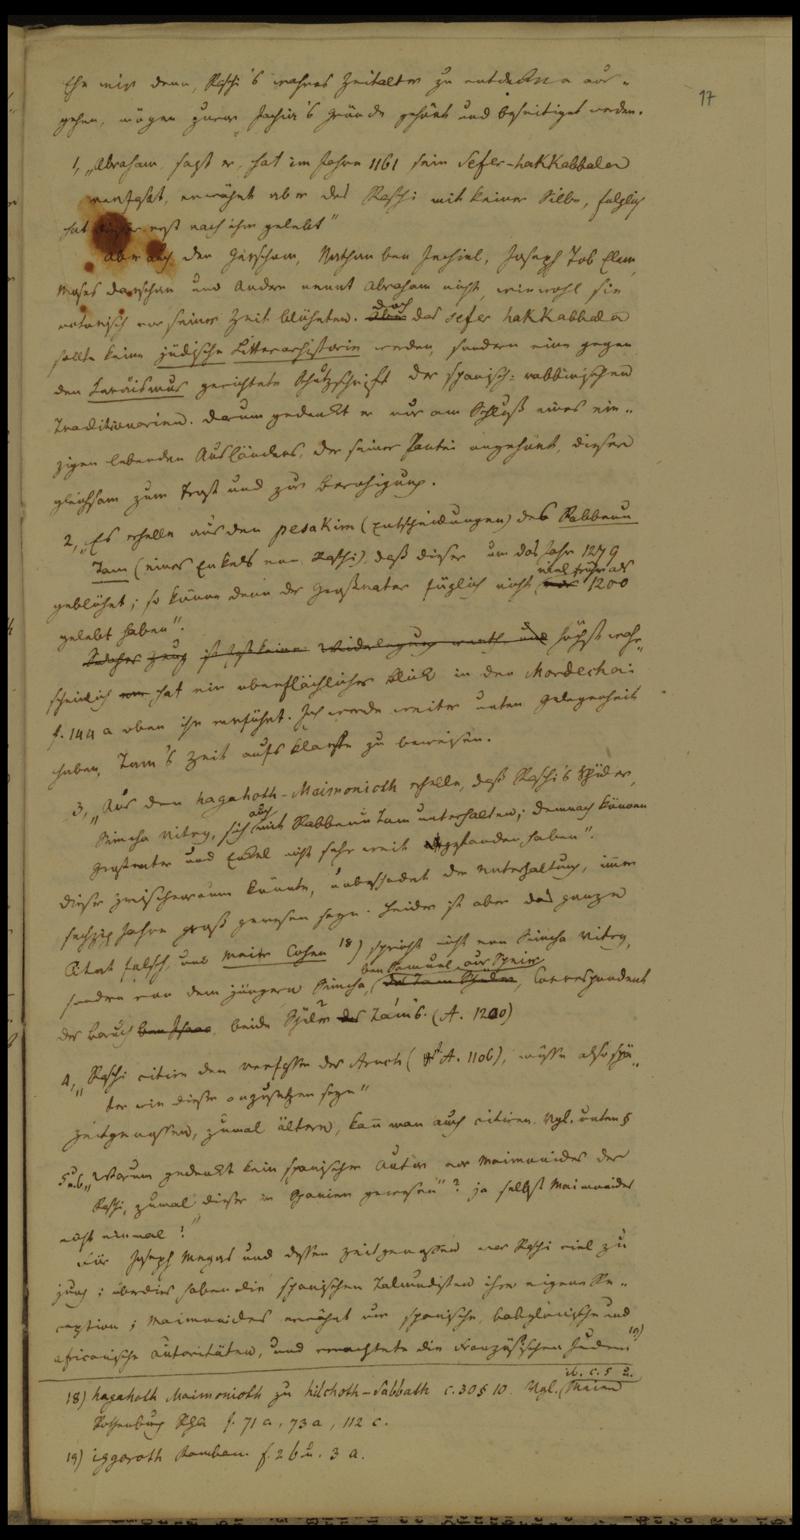 17
Ehe wir denn, Raschi's wahres Zeitalter zu entdecken aus-
gehen, mögen zuvor Jachia's Gründe gehört und beseitiget werden.
1, „Abraham, sagt er, hat im Jahre 1161 sein Sefer-hakKabbala
verfaßt, erwähnt aber des Raschi mit keiner Silbe, folglich
hat dieser erst nach ihm gelebt"
Aber auch den Gerschom, Nathan ben Jechiel, Joseph Tob Elem,
Moses Darschan und Andere nennt Abraham nicht, wiewohl sie
notorisch vor seiner Zeit blühten. doch das Sefer hakKabbala
sollte keine jüdische Litterarhistorie werden, sondern eine gegen
den Karäismus gerichtete Schutzschrift der spanisch-rabbinischen
Traditionarien. darum gedenkt er nur am Schluß eines ein-
zigen lebenden Ausländers, der seiner Partei angehört, dieser
gleichsam zum Trost und zur Beruhigung.
2, „Es erhelle aus den pesakim (Entscheidungen) des Rabbenu
Tam (eines Enkels von Raschi), daß dieser um das Jahr 1279
geblühet; so könne denn der Großvater füglich nicht viel früher als 1200
gelebt haben".
Solches Zeug ist fast keiner Widerlegung werth, und höchst wahr-
scheinlich hat ein oberflächlicher Blick in den Mordechai
f. 144 a oben ihn verführt. Ich werde weiter unten Gelegenheit
haben, Tam's Zeit aufs klarste zu beweisen.
3, „Aus den hagahoth-Maimonioth erhelle, daß Raschi's Schüler,
Simcha Vitry, sich auch mit Rabbenu Tam unterhalten; demnach können
Großvater und Enkel nicht sehr weit abgestanden haben".
dieser Zwischenraum könnte, unbeschadet der Unterhaltung, immer
sechzig Jahre groß gewesen seyn. Leider ist aber das ganze
Citat falsch, und Meir Cohen 18) spricht nicht von Simcha Vitry,
sondern von dem jüngern Simcha, ben Samuel aus Speier, Correspondent
des Baruch beide Schüler Tam's. (A. 1200)
4, „Raschi citire den Verfasser des Aruch (st. A. 1106), müsse also spä-
ter wie dieser anzusetzen seyn"
Zeitgenossen, zumal ältere, kann man auch citiren. Vgl. unten §
5 u. 6, „Warum gedenkt kein spanischer Autor vor Maimonides des
Raschi, zumal dieser in Spanien gewesen"? ja selbst Maimonides
nicht einmal!"
Für Joseph Megas und dessen Zeitgenossen war Raschi viel zu
jung; überdies haben die spanischen Talmudisten ihre eigene Re-
ception; Maimonides erwähnt nur spanische, babylonische und
africanische Autoritäten, und verachtete die Französischen Juden 19)
18) hagahoth Maimonioth zu hilchoth-Sabbath c. 30 § 10. Vgl. ib. c. 5 § 2.
Rothenburg f. 71 a, 73 a, 112 c.
19) iggeroth Rambam f. 2 b u. 3 a.